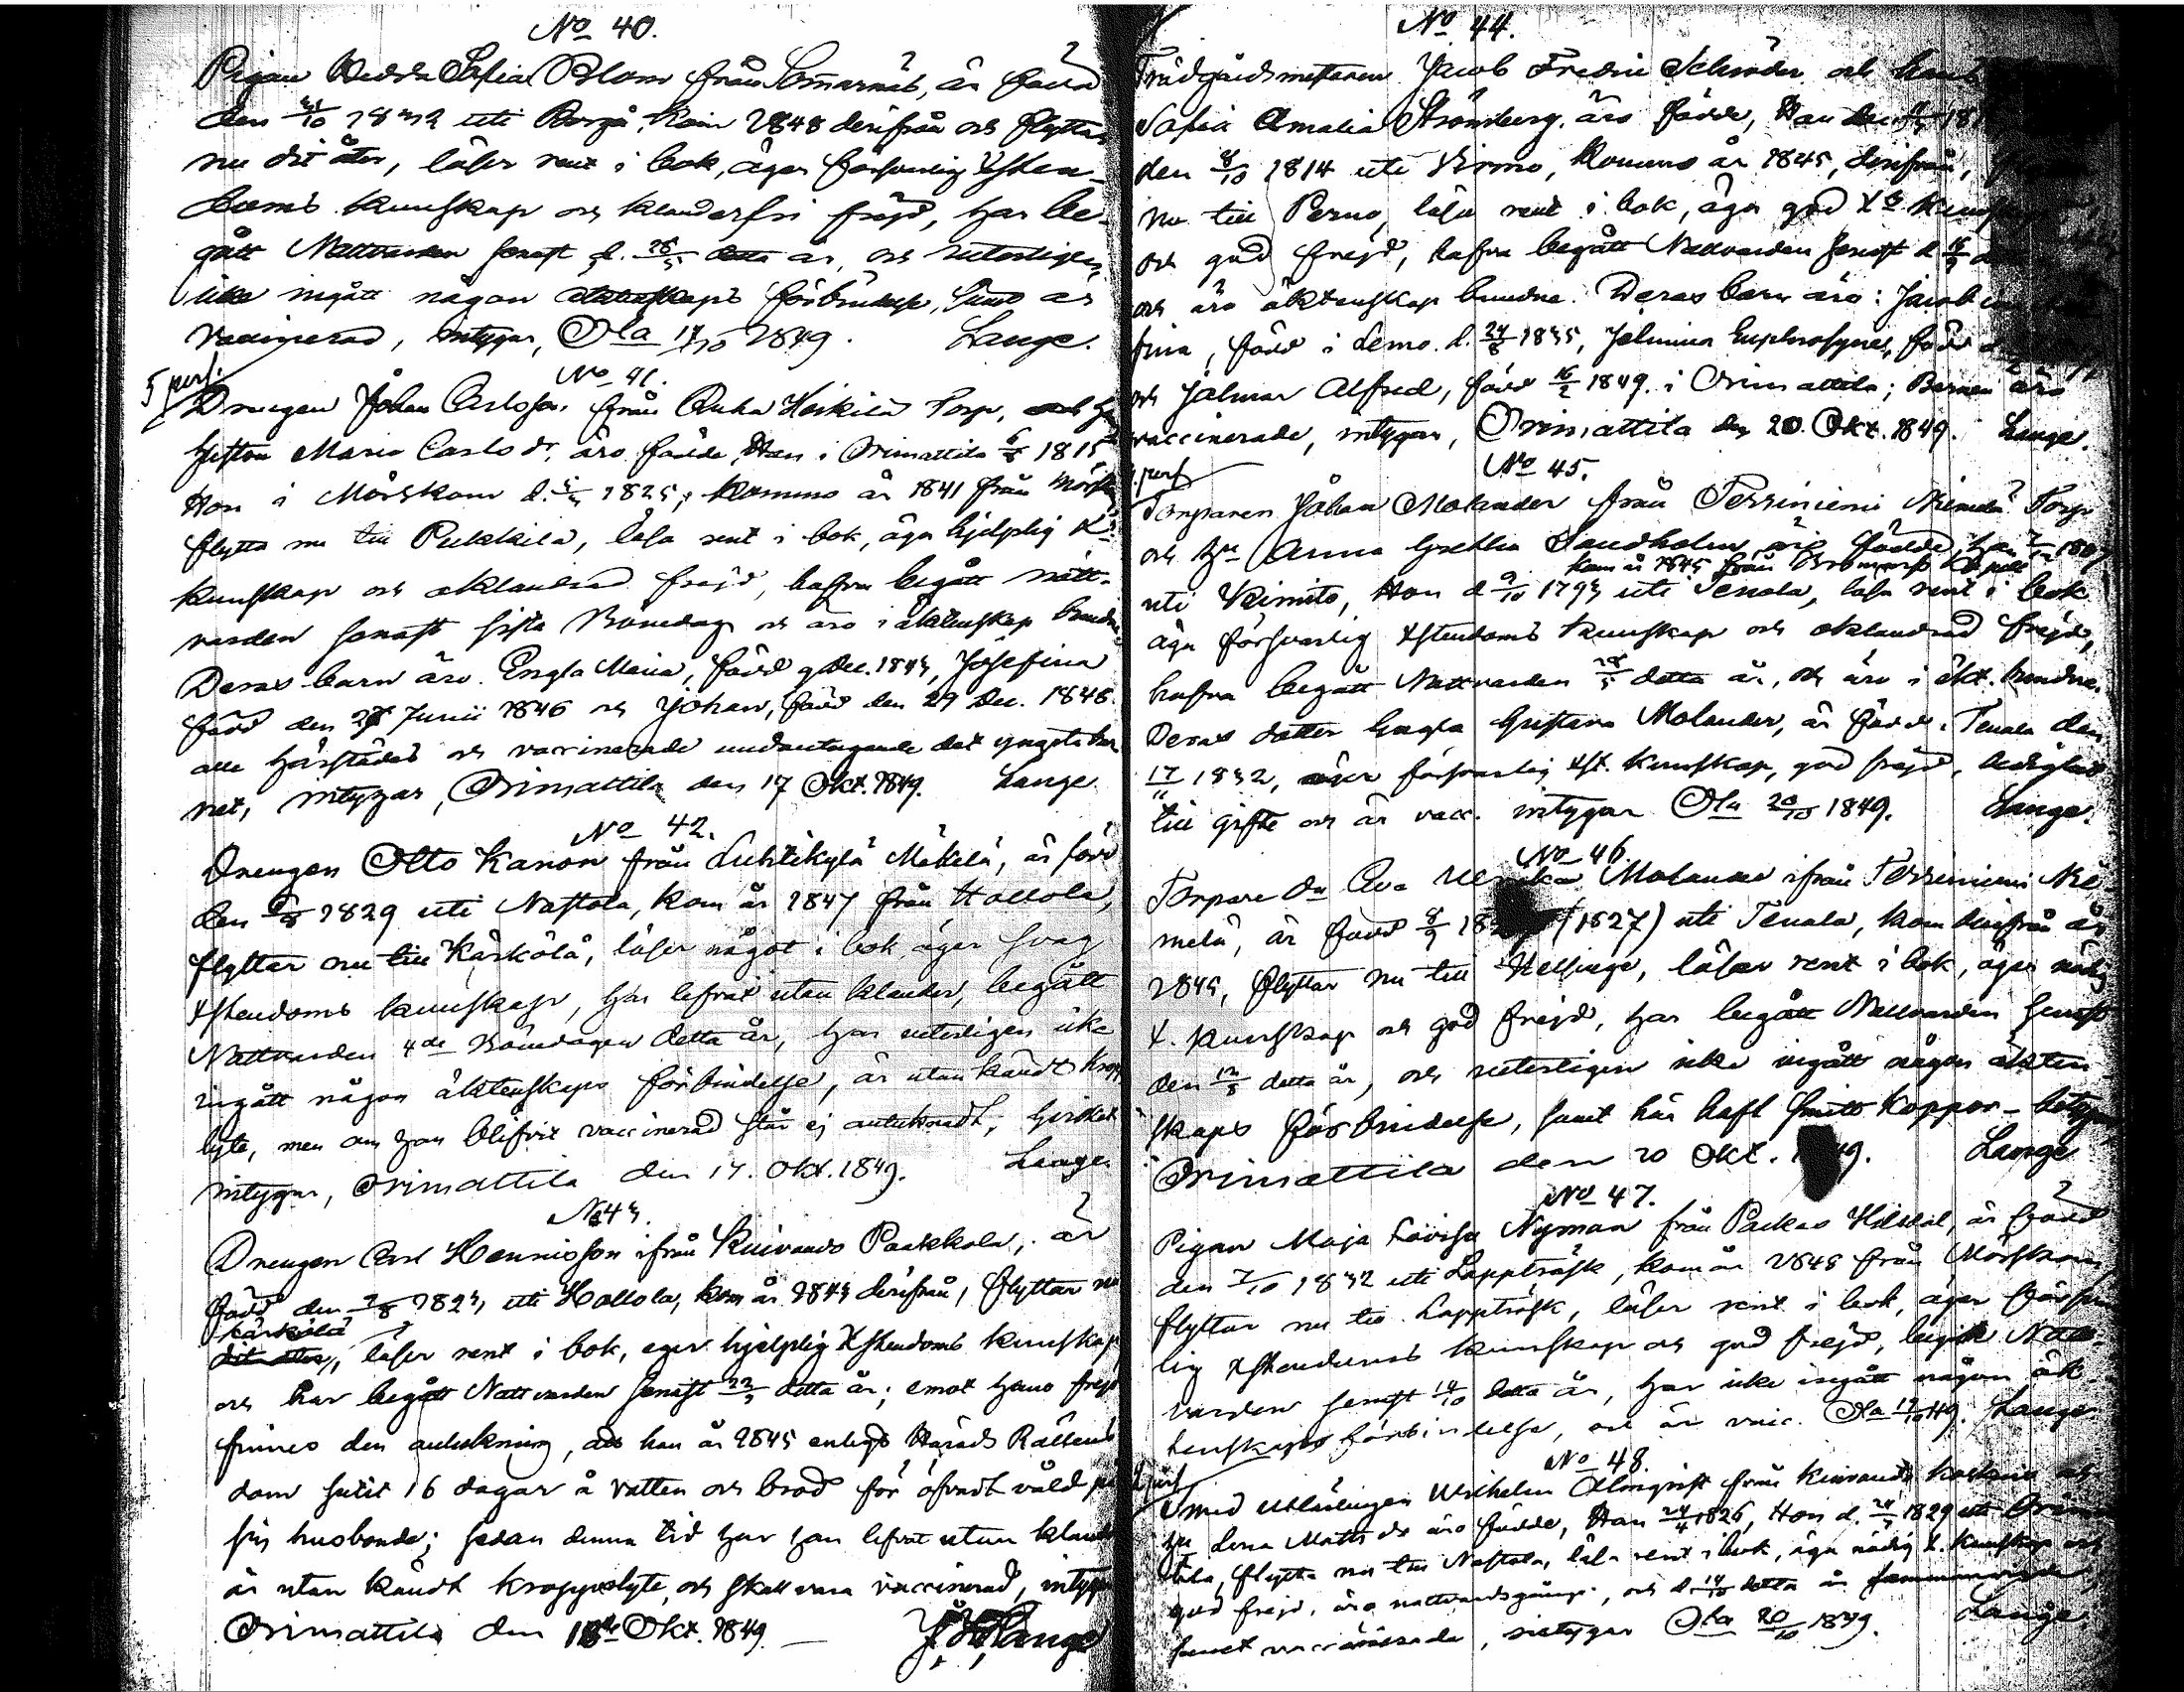 No 40.
Pigan Hedda Sofia Blom från Sommarnäs, är född
den /10 1832 uti Borgå, kom 1848 derifrån och flyttar
nu dit åter, läser rent i bok, äger försvarlig Xsten-
doms kunskap och klanderfri frejd, har be-
gått Nattvarden senast d. 28/5 detta år, och veterligen
icke ingått någon äktenskaps förbindelse, samt är
vaccinerad, intygar, Ola 17/10 1849. Lange.
5 pers. No 41.
Drengen Johan Carlsson från Heikilä Torp, och h
hustru Maria Carlsdr, äro födde, Han i Orimattila 6/8 1815
Hon i Mörskom d. 1825; kommo år 1841 från Mörsk
flytta nu till Pukkila, läsa rent i bok, äga hjelplig X
kunskap och oklandrad frejd, hafva begått natt-
varden senast sista Bönedag och äro i äktenskap bundne
Deras barn äro: Engla Maria, född 9 Dec. 1843, Josefina
född den 27 Junii 1846 och Johan, född den 29 Dec. 1848.
alla härstädes och vaccinerade undantagande det yngsta bar
net, intygar, Orimattila den 17 Okt. 1849. Lange.
No 42.
Drengen Otto Kanon från Luhtikylä Mäkelä, är född
den /8 1829 uti Nastola, kom år 1847 från Hollola,
flyttar nu till Kärkölä, läser något i bok, äger svag
Xstendoms kunskap, har lefvat utan klander, begått
Nattvarden 4de Bönedagen detta år, har veterligen icke
ingått någon äktenskaps förbindelse, är utan kändt kropps
lyte, men om han blifvit vaccinerad står ej antecknadt, hvilket
intygar, Orimattila den 17. Okt. 1849. Lange.
No 43.
Drengen Carl Henricsson ifrån Kuivando Paakkola, är
född den /8 1823, uti Hollola, kom år 1843 derifrån, flyttar nu
Kärkölä
dit åter, läser rent i bok, eger hjelplig Xstendoms kunskap
och har begått Nattvarden senast 22/5 detta år; emot hans frejd
finnes den anteckning, att han år 1845 enligt Härads Rättens
dom sutit 16 dagar å vatten och bröd för öfvadt våld på
sin husbonde; sedan denna tid har han lefvat utan klander
är utan kändt kroppslyte, och skall vara vaccinerad, intygar
Orimattila den 18de Okt. 1849. Lange
No 44.
Trädgårdsmästaren Jacob Fredric Schröder och hans
Sofia Amalia Strömberg äro födde, Han den 181
den 8/10 1814 uti Virmo, kommo år 1845, derifrån,
nu till Perno, läsa rent i bok, äga god Xs kunsk
och god frejd, hafva begått Nattvarden senast d 16/9 d
och äro äktenskap bundne. Deras barn äro: Jacob
fina, född i Lemo d. 24/8 1835, Jelmina Euphrosyne, född d
och Jalmar Alfred, född 16/2 1849 i Orimattila; Barnen äro
vaccinerade, intygar, Orimattila den 20. Okt. 1849. Lange.
pers No 45.
Torparen Johan Molander från Terriniemi Niemelä Torp
och hu Anna Sandholm, äro födde, han 1807
kom år 1845 från Bromarf Kapell
uti Kimito, Hon d 9/10 1793 uti Tenala, läsa rent i bok
äga försvarlig Xstendoms kunskap och oklandrad frejd,
hafva begått Nattvarden 28/5 detta år, och äro i äkt. bundne.
Deras dotter Engla Gustava Molander, är född i Tenala den
17/11 1832, äger försvarlig Xst. kunskap, god frejd, ledighet
till gifte och är vacc. intygar Ola 20/10 1849. Lange.
No 46
Torpare dr Eva Molander ifrån Terriniemi Nie
melä, är född 8/9 18 (1827) uti Tenala, kom derifrån år
1845, flyttar nu till Helsinge, läser rent i bok, äger nödig
X. kunskap och god frejd, har begått Nattvarden senast
den 12/8 detta år, och veterligen icke ingått någon äkten
skaps förbindelse, samt har haft Smitt Koppor – betygar
Orimattila den 20 Okt. 1849. Lange
No 47.
Pigan Maja Lovisa Nyman från Packas, är född
den 7/10 1832 uti Lappträsk, kom år 1848 från Mörskom
flyttar nu till Lappträsk, läser rent i bok, äger försvar
lig Xstendoms kunskap och god frejd, begick Natt-
varden senast 14/10 detta år, har icke ingått någon äk
tenskaps förbindelse, och är vacc. Ola 17/10 49. Lange
2 pers No 48.
Smed Utlärlingen Wilhelm Almqvist från Kuivando Koskens och
hu Lena Matts dr äro födde, Han 24/4 1826, Hon d. 24/7 1829 uti Orimat
tila, flytta nu till Nastola, läsa rent i bok, äga nödig X. kunskap och
god frejd, äro nattvardsgångne, och d. 14/10 detta år
samt vaccinerade, intygar Ola 20/10 1849. Lange.